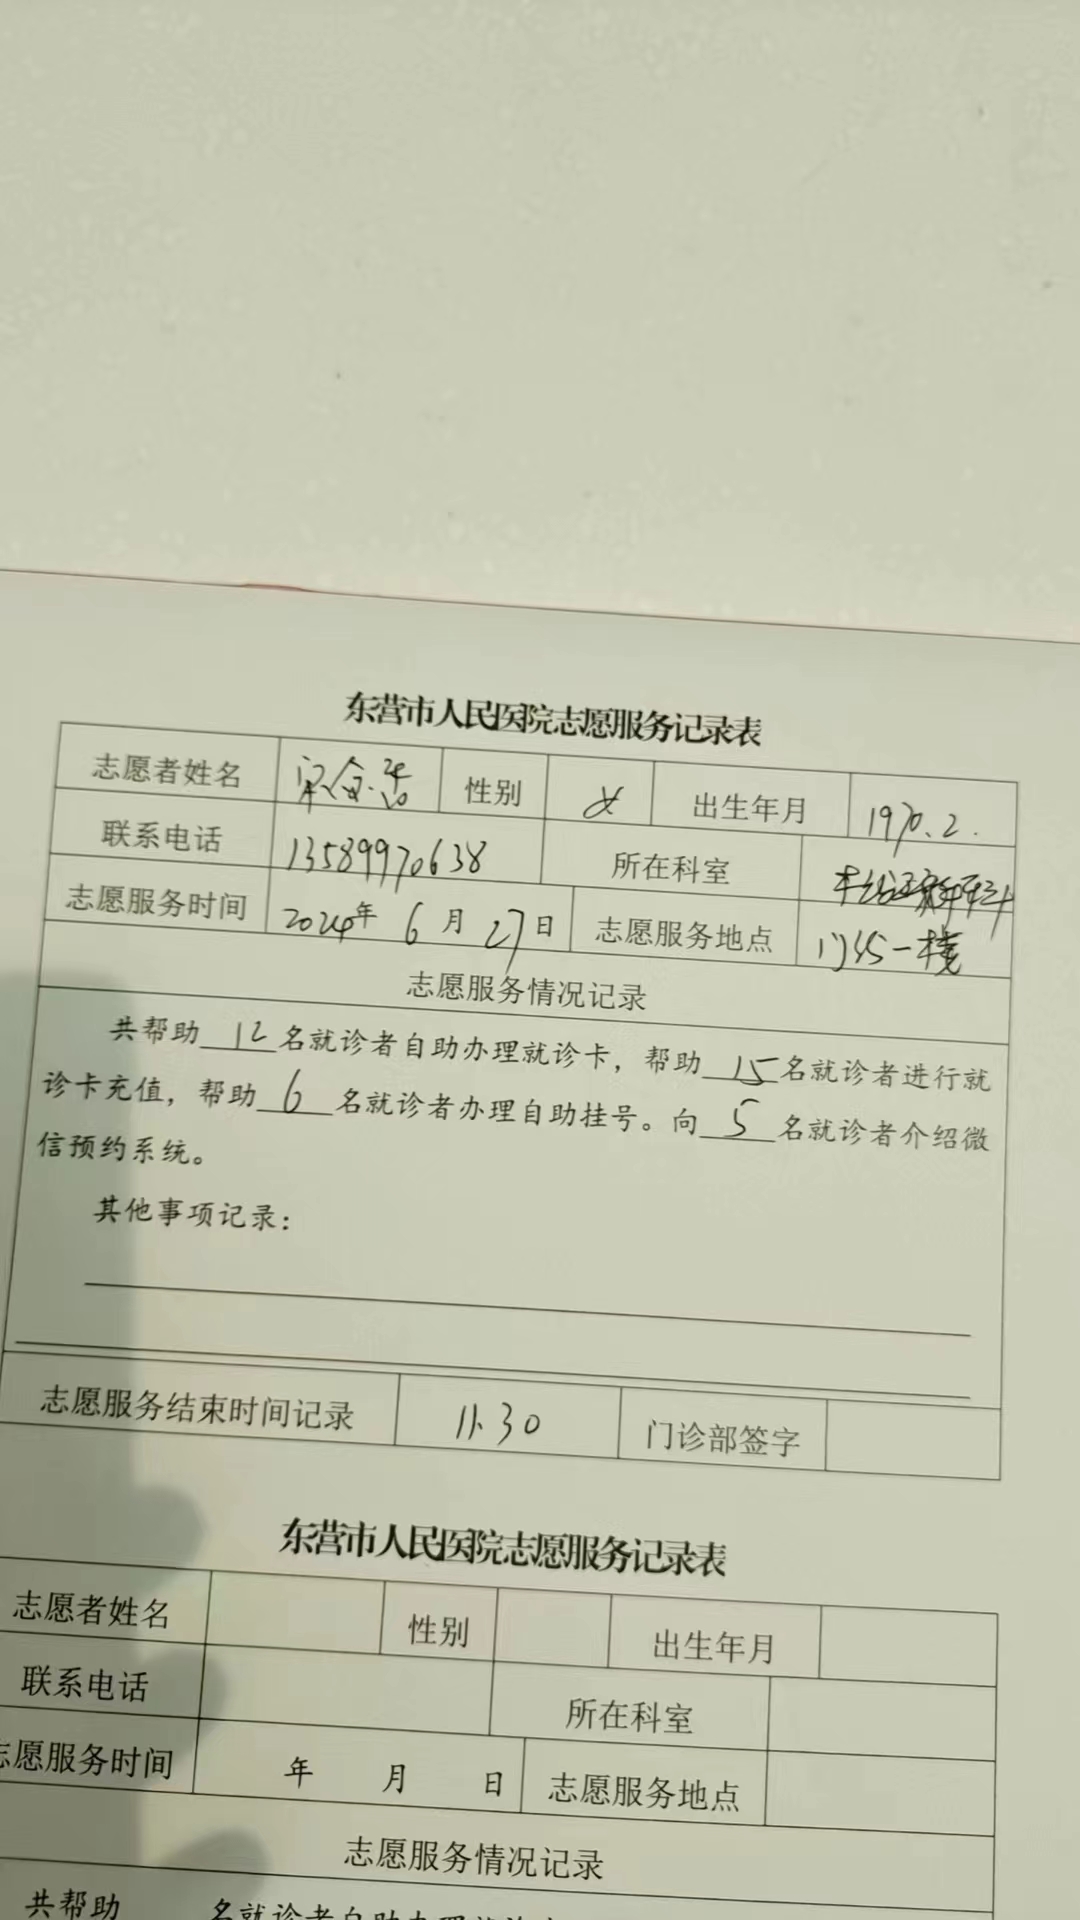 东营市人民医院志愿服务记录表
志愿者姓名 性别 女 出生年月 1970.2.
联系电话 13589970638 所在科室
志愿服务时间 2024年 6 月 27日 志愿服务地点 门诊一楼
志愿服务情况记录
共帮助 12 名就诊者自助办理就诊卡，帮助 15 名就诊者进行就
诊卡充值，帮助 6 名就诊者办理自助挂号。向 5 名就诊者介绍微
信预约系统。
其他事项记录：
志愿服务结束时间记录 11.30 门诊部签字
东营市人民医院志愿服务记录表
志愿者姓名 性别 出生年月
联系电话 所在科室
志愿服务时间 年 月 日 志愿服务地点
志愿服务情况记录
共帮助 名就诊者自助办理就诊卡